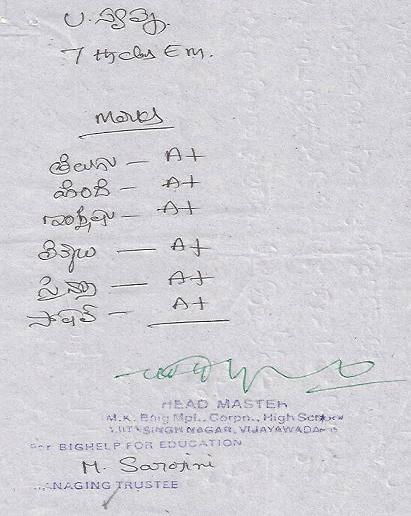 7 th class E m.
Marks
తెలుగు — A+
హింది — A+
ఇంగ్లీషు — A+
లెక్కలు — A+
సైన్సు — A+
సోషల్ — A+
HEAD MASTER
M.K. Baig Mpl., Corpn., High School
SINGH NAGAR, VIJAYAWADA-15
For BIGHELP FOR EDUCATION
M. Sarojini
MANAGING TRUSTEE